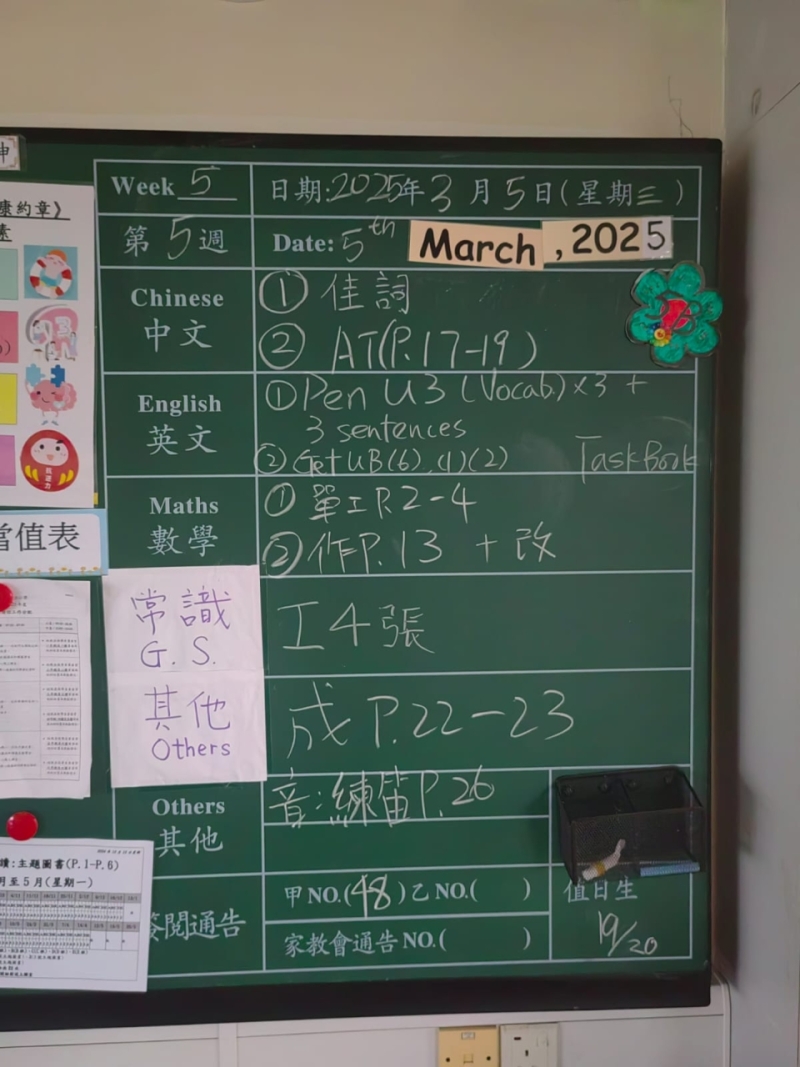 Week 5
日期:2025年3月5日(星期三)
第5週
Date: 5th March, 2025
Chinese
中文
① 佳詞
② AT(P.17-19)
English
英文
① Pen U3 (Vocab.)×3 +
3 sentences
② Get UB(6), (1)(2) Task Book
Maths
數學
① 單工P.2-4
② 作P.13 + 改
常識
G. S.
工4張
其他
Others
成 P.22-23
Others
其他
音:練笛P.26
簽閱通告
甲NO.(48)乙NO.( )
家教會通告NO.( )
值日生
19/20
康約章》
素
當值表
讀:主題圖書(P.1-P.6)
月至5月(星期一)